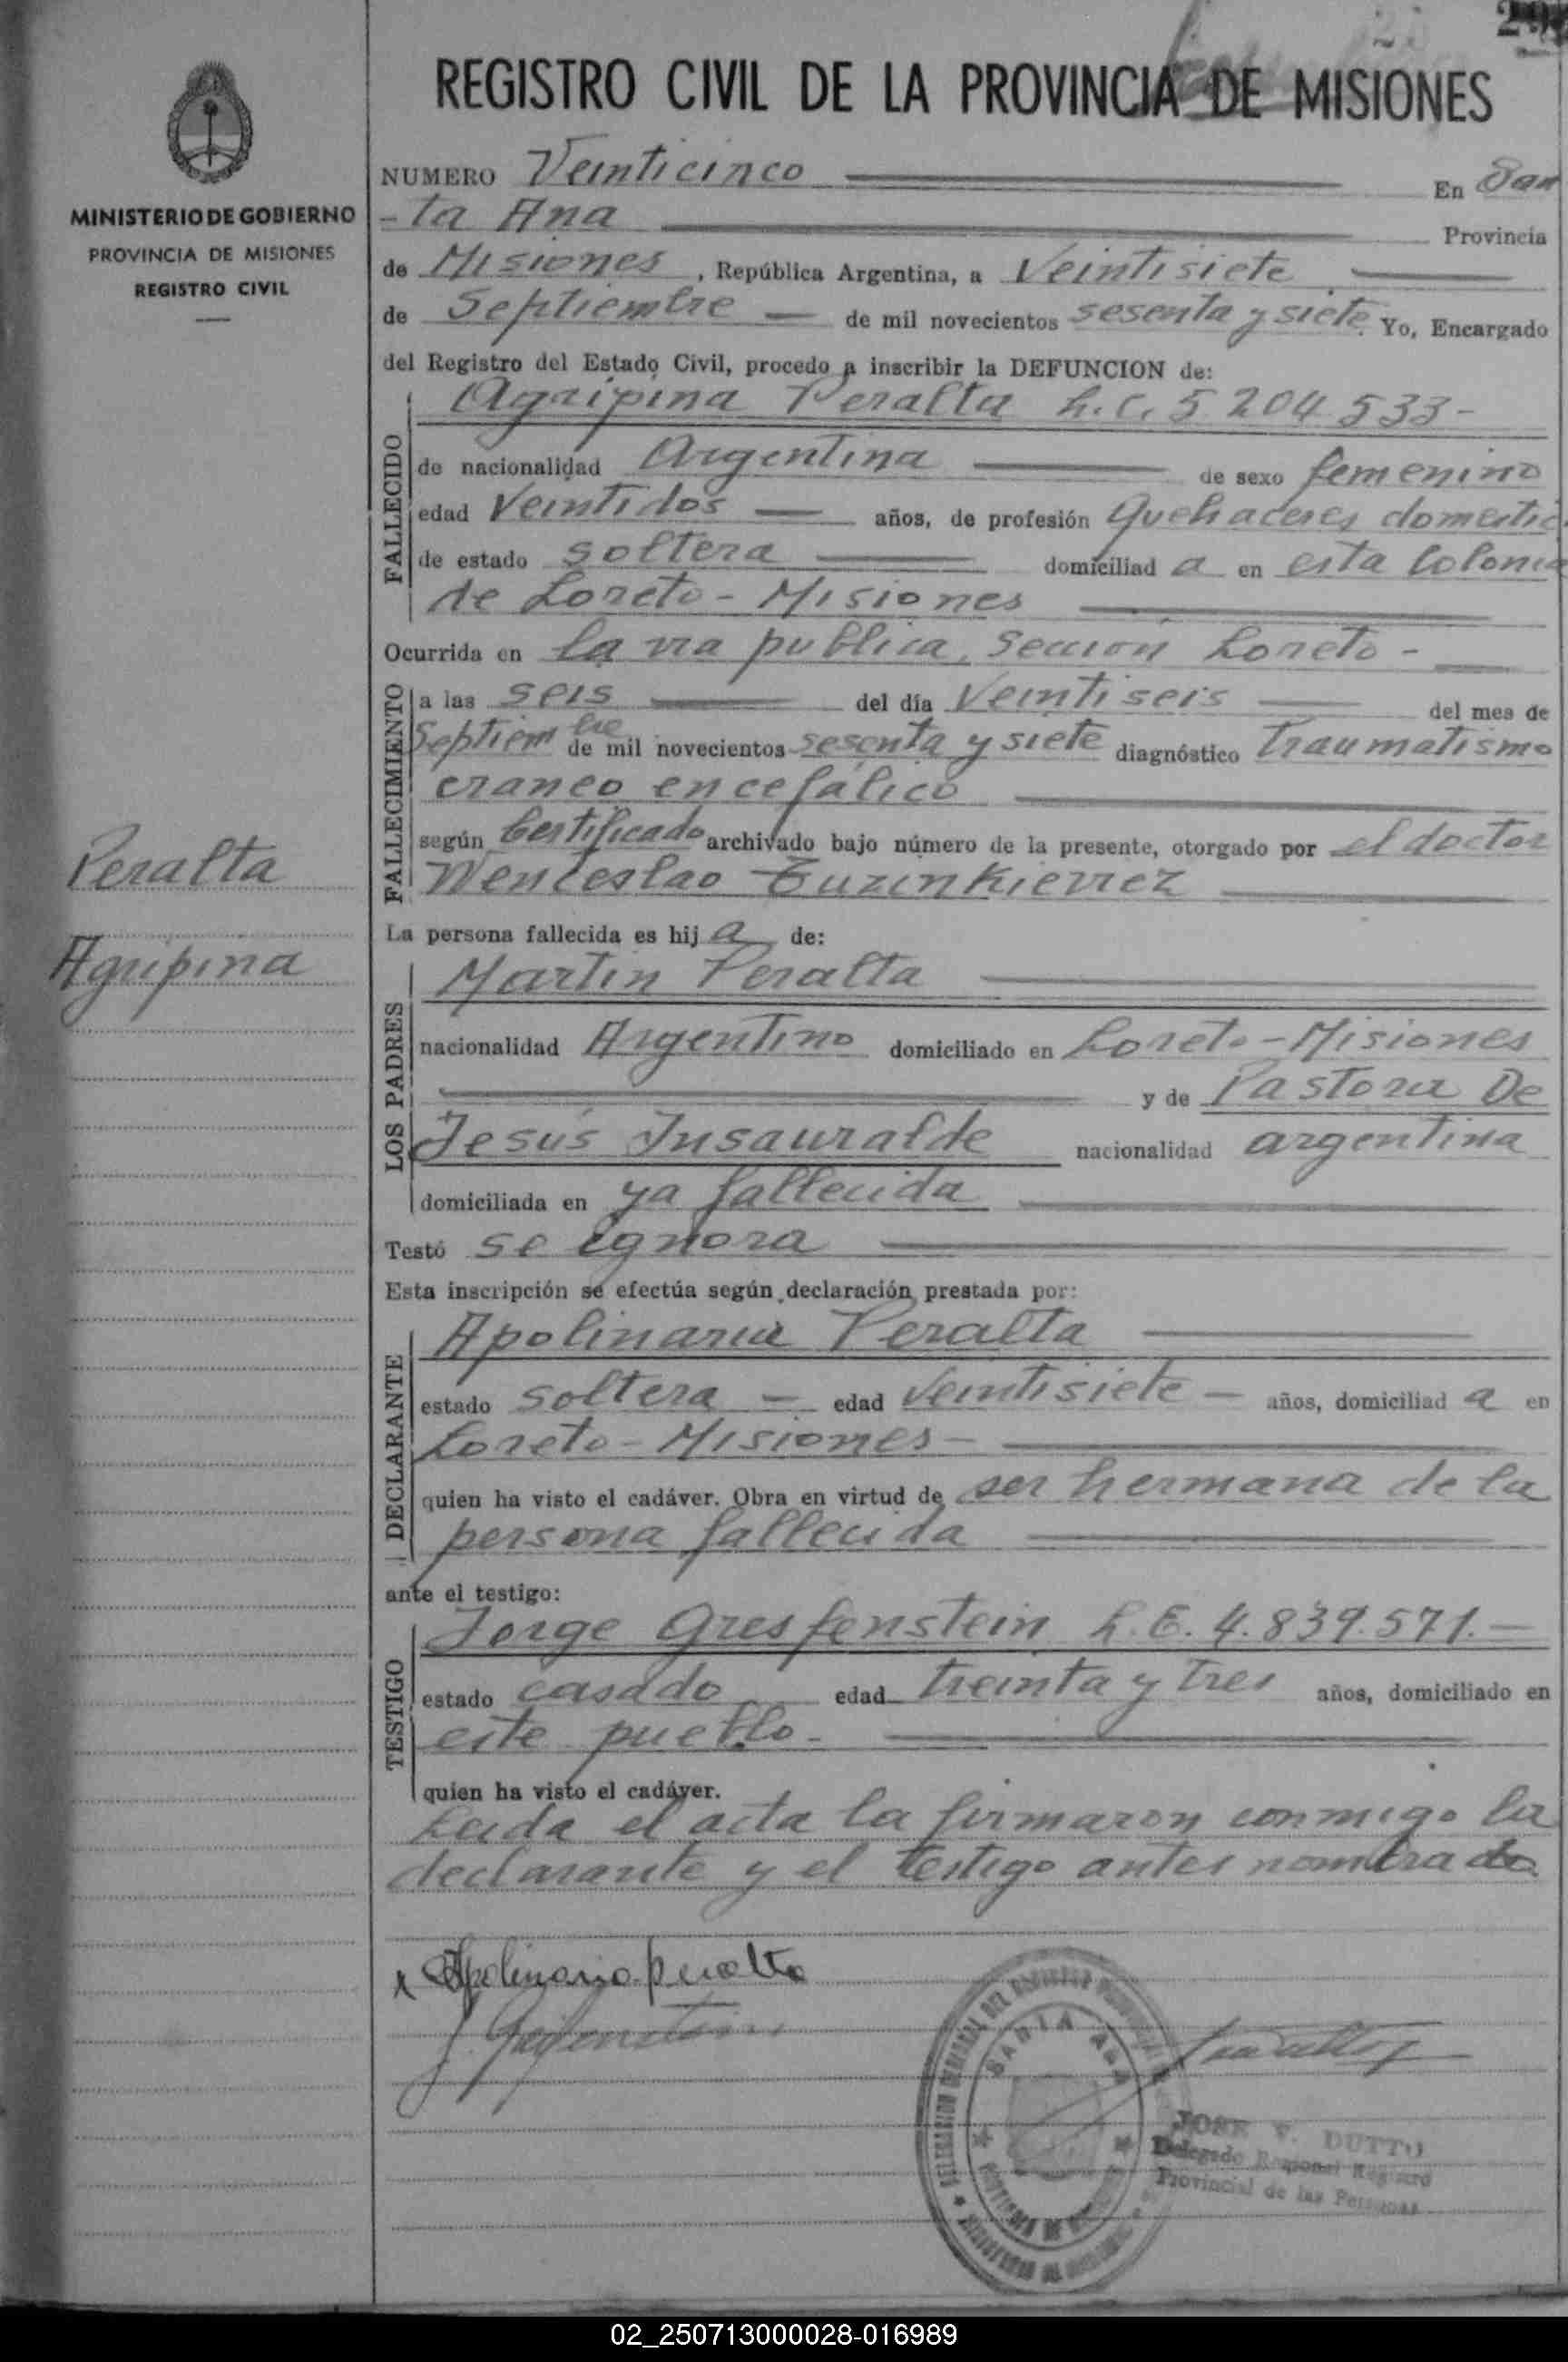 REGISTRO CIVIL DE LA PROVINCIA DE MISIONES
MINISTERIO DE GOBIERNO
PROVINCIA DE MISIONES
REGISTRO CIVIL
Peralta
Agripina
NUMERO Veinticinco En San
-ta Ana Provincia
de Misiones, República Argentina, a Veintisiete
de Septiembre de mil novecientos sesenta y siete Yo, Encargado
del Registro del Estado Civil, procedo a inscribir la DEFUNCION de:
FALLECIDO
Agripina Peralta L.C. 5 204 533-
de nacionalidad Argentina de sexo femenino
edad Veintidos años, de profesión Quehaceres domestic
de estado soltera domiciliad a en esta Colonia
de Loreto - Misiones
Ocurrida en la via publica, Sección Loreto -
FALLECIMIENTO
a las seis del día Veintiseis del mes de
Septiembre de mil novecientos sesenta y siete diagnóstico Traumatismo
craneo encefálico
según Certificado archivado bajo número de la presente, otorgado por el doctor
Wenceslao
La persona fallecida es hij a de:
LOS PADRES
Martin Peralta
nacionalidad Argentino domiciliado en Loreto - Misiones
y de Pastora De
Jesús Insauralde nacionalidad argentina
domiciliada en ya fallecida
Testó se ignora
Esta inscripción se efectúa según declaración prestada por:
DECLARANTE
Apolinaria Peralta
estado soltera - edad Veintisiete - años, domiciliad a en
Loreto - Misiones -
quien ha visto el cadáver. Obra en virtud de ser hermana de la
persona fallecida
ante el testigo:
TESTIGO
Jorge Gresfenstein L.E. 4.839.571.-
estado casado edad treinta y tres años, domiciliado en
este pueblo -
quien ha visto el cadáver.
Leida el acta la firmaron conmigo la
declarante y el testigo antes nombrado
x Apolinaria peralta
SANTA ANA
JOSE V. DUTTO
Delegado Regional Registro
Provincial de las Personas
02_250713000028-016989